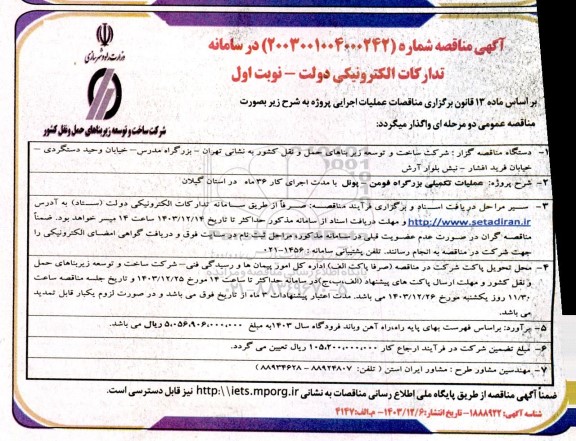 آگهی مناقصه شماره (۲۰۰۳۰۰۱۰۰۴۰۰۰۲۴۲) در سامانه
تدارکات الکترونیکی دولت – نوبت اول
وزارت راه و شهرسازی
شرکت ساخت و توسعه زیربناهای حمل و نقل کشور
بر اساس ماده ۱۳ قانون برگزاری مناقصات عملیات اجرایی پروژه به شرح زیر بصورت
مناقصه عمومی دو مرحله ای واگذار میگردد:
۱– دستگاه مناقصه گزار : شرکت ساخت و توسعه زیربناهای حمل و نقل کشور به نشانی تهران – بزرگراه مدرس– خیابان وحید دستگردی –
خیابان فرید افشار – نبش بلوار آرش
۲– شرح پروژه: عملیات تکمیلی بزرگراه فومن – پونل با مدت اجرای کار ۳۶ ماه در استان گیلان
۳– سیر مراحل دریافت اسناد و برگزاری فرآیند مناقصه: صرفاً از طریق سامانه تدارکات الکترونیکی دولت (ستاد) به آدرس
http://www.setadiran.ir و مهلت دریافت اسناد از سامانه مذکور حداکثر تا تاریخ ۱۴۰۳/۱۲/۱۴ ساعت ۱۴ میسر خواهد بود. ضمناً
مناقصه گران در صورت عدم عضویت قبلی در سامانه مذکور، مراحل ثبت نام در سایت فوق و دریافت گواهی امضای الکترونیکی را
جهت شرکت در مناقصه به انجام رسانند. تلفن پشتیبانی سامانه : ۱۴۵۶-۰۲۱
۴– محل تحویل پاکت شرکت در مناقصه (صرفا پاکت الف) اداره کل امور پیمان ها و رسیدگی فنی– شرکت ساخت و توسعه زیربناهای حمل
و نقل کشور و مهلت ارسال پاکت های پیشنهاد (الف،ب،ج)در سامانه حداکثر تا ساعت ۱۴ مورخ ۱۴۰۳/۱۲/۲۵ و تاریخ جلسه مناقصه ساعت
۱۱/۳۰ روز یکشنبه مورخ ۱۴۰۳/۱۲/۲۶ می باشد. مدت اعتبار پیشنهادات ۳ ماه از تاریخ فوق می باشد و در صورت لزوم یکبار قابل تمدید
می باشد.
۵– برآورد: براساس فهرست بهای پایه راه،راه آهن وباند فرودگاه سال ۱۴۰۳به مبلغ ۵،۰۵۶،۹۰۶،۰۰۰،۰۰۰ ریال می باشد.
۶– مبلغ تضمین شرکت در فرآیند ارجاع کار ۱۰۵،۲۰۰،۰۰۰،۰۰۰ ریال تعیین می گردد.
۷– مهندسین مشاور طرح : مشاور ایران استن ( تلفن: ۸۸۹۲۴۸۰۷ – ۸۸۹۳۴۶۲۸ )
ضمناً آگهی مناقصه از طریق پایگاه ملی اطلاع رسانی مناقصات به نشانی http:\\iets.mporg.ir نیز قابل دسترسی است.
شناسه آگهی: ۱۸۸۸۹۲۲– تاریخ انتشار: ۱۴۰۳/۱۲/۶– م.الف: ۴۱۴۷